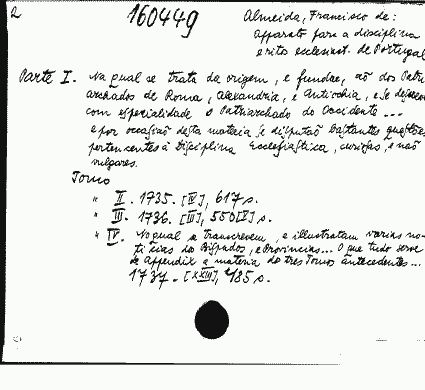 2
160449
Almeida, Francisco de:
Apparato para a disciplina
e ritos ecclesiast. de Portugal
Parte I. Na qual se trata da origem, e fundaç aõ dos Patri
archados de Roma, Alexandria, e Antiochia, e se descreve
com especialidade o Patriarchado do Occidente ...
e por occasiaõ desta materia se disputaõ bastantes questões
pertencentes à Disciplina Ecclesiastica, curiosas, e naõ
vulgares.
Tomo
" II. 1735. [IV], 617 s.
" III. 1736. [III], 550 [V] s.
" IV. No qual se transcrevem, e illustratam varias no-
ticias dos Bispados, e Provincias... O que tudo serve
de Appendix a materia do tres Tomos antecedentes...
1737. [XXIII], 485 s.